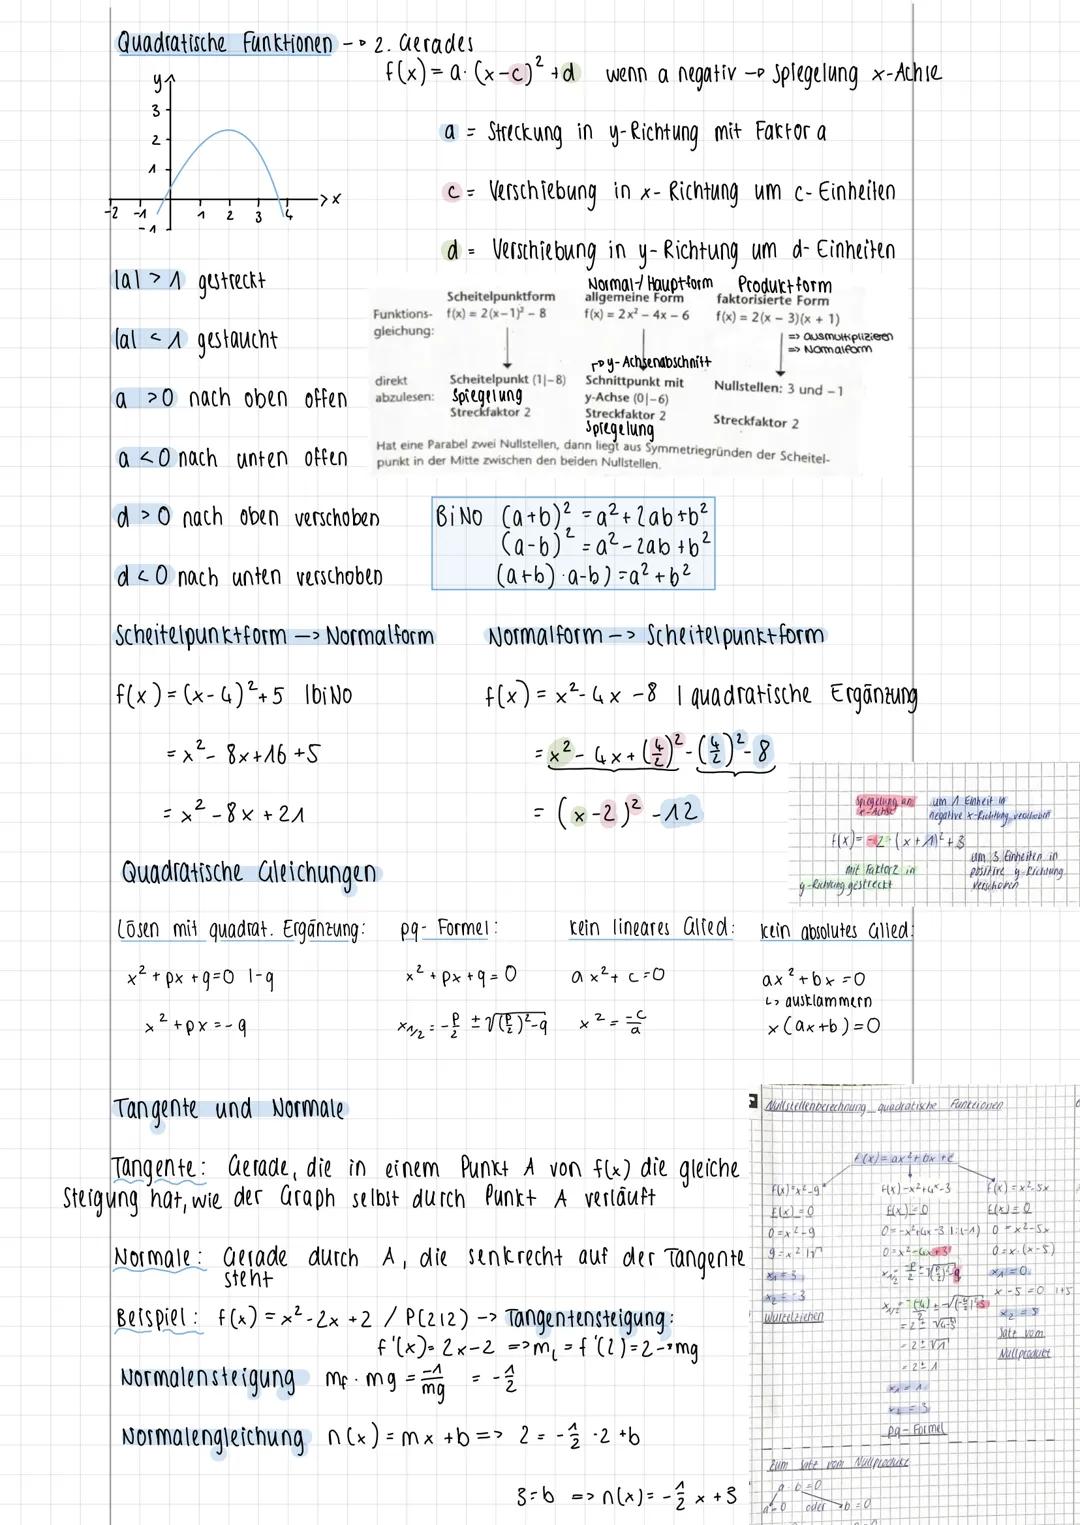 Quadratische Funktionen -→ 2. Grades
f(x) = a · (x-c)² + d   wenn a negativ → Spiegelung x-Achse
y
3
2
1
-2 -1 1 2 3 4 x
-1
a = Streckung in y-Richtung mit Faktor a
c = Verschiebung in x-Richtung um c-Einheiten
d = Verschiebung in y-Richtung um d-Einheiten
|a| > 1 gestreckt
|a| < 1 gestaucht
a > 0 nach oben offen
a < 0 nach unten offen
d > 0 nach oben verschoben
d < 0 nach unten verschoben
Normal-/Hauptform Produktform
Scheitelpunktform allgemeine Form faktorisierte Form
Funktions- f(x) = 2(x – 1)² – 8 f(x) = 2x² – 4x – 6 f(x) = 2(x – 3)(x + 1)
gleichung:
=> ausmultiplizieren
=> Normalform
→ y-Achsenabschnitt
direkt Scheitelpunkt (1|–8) Schnittpunkt mit Nullstellen: 3 und –1
abzulesen: Spiegelung y-Achse (0|–6)
Streckfaktor 2 Streckfaktor 2 Streckfaktor 2
Spiegelung
Hat eine Parabel zwei Nullstellen, dann liegt aus Symmetriegründen der Scheitel-
punkt in der Mitte zwischen den beiden Nullstellen.
BiNO (a+b)² = a² + 2ab + b²
(a-b)² = a² - 2ab + b²
(a+b) · a-b) = a² + b²
Scheitelpunktform —> Normalform
f(x) = (x-4)² + 5 |biNo
= x² - 8x + 16 + 5
= x² - 8x + 21
Normalform —> Scheitelpunktform
f(x) = x² - 4x - 8 | quadratische Ergänzung
= x² - 4x + (4/2)² - (4/2)² - 8
= (x-2)² - 12
Spiegelung an x-Achse
um 1 Einheit in
negative x-Richtung verschoben
f(x) = -2 · (x+1)² + 3
mit Faktor 2 in
y-Richtung gestreckt
um 3 Einheiten in
positive y-Richtung
verschoben
Quadratische Gleichungen
Lösen mit quadrat. Ergänzung: pq-Formel: kein lineares Glied: kein absolutes Glied:
x² + px + q = 0 |-q x² + px + q = 0 ax² + c = 0 ax² + bx = 0
↳ ausklammern
x² + px = -q x₁/₂ = -p/2 ± √(p/2)²-q x² = -c/a x(ax+b) = 0
Tangente und Normale
Tangente: Gerade, die in einem Punkt A von f(x) die gleiche
Steigung hat, wie der Graph selbst durch Punkt A verläuft
Normale: Gerade durch A, die senkrecht auf der Tangente
steht
Beispiel: f(x) = x² - 2x + 2 / P(2|2) -> Tangentensteigung:
f'(x) = 2x-2 => m_t = f'(2) = 2 → mg
Normalensteigung mf · mg = -1/mg = -1/2
Normalengleichung n(x) = mx + b => 2 = -1/2 · 2 + b
3 = b => n(x) = -1/2 x + 3
Nullstellenberechnung quadratische Funktionen
f(x) = ax² + bx + c
f(x) = x²-9
f(x) = 0
0 = x²-9
9 = x² |√
x₁ = 3
x₂ = -3
Wurzelziehen
f(x) = -x²+4x-3
f(x) = 0
0 = -x²+4x-3 |:(-1)
0 = x²-4x+3
= 2 ± √4-3
= 2 ± √1
= 2 ± 1
x₁ = 1
x₂ = 3
pq-Formel
f(x) = x²-5x
f(x) = 0
0 = x²-5x
0 = x·(x-5)
x₁ = 0
x-5 = 0 |+5
x₂ = 5
Satz vom
Nullprodukt
Zum Satz vom Nullprodukt
a · b = 0
a = 0 oder b = 0